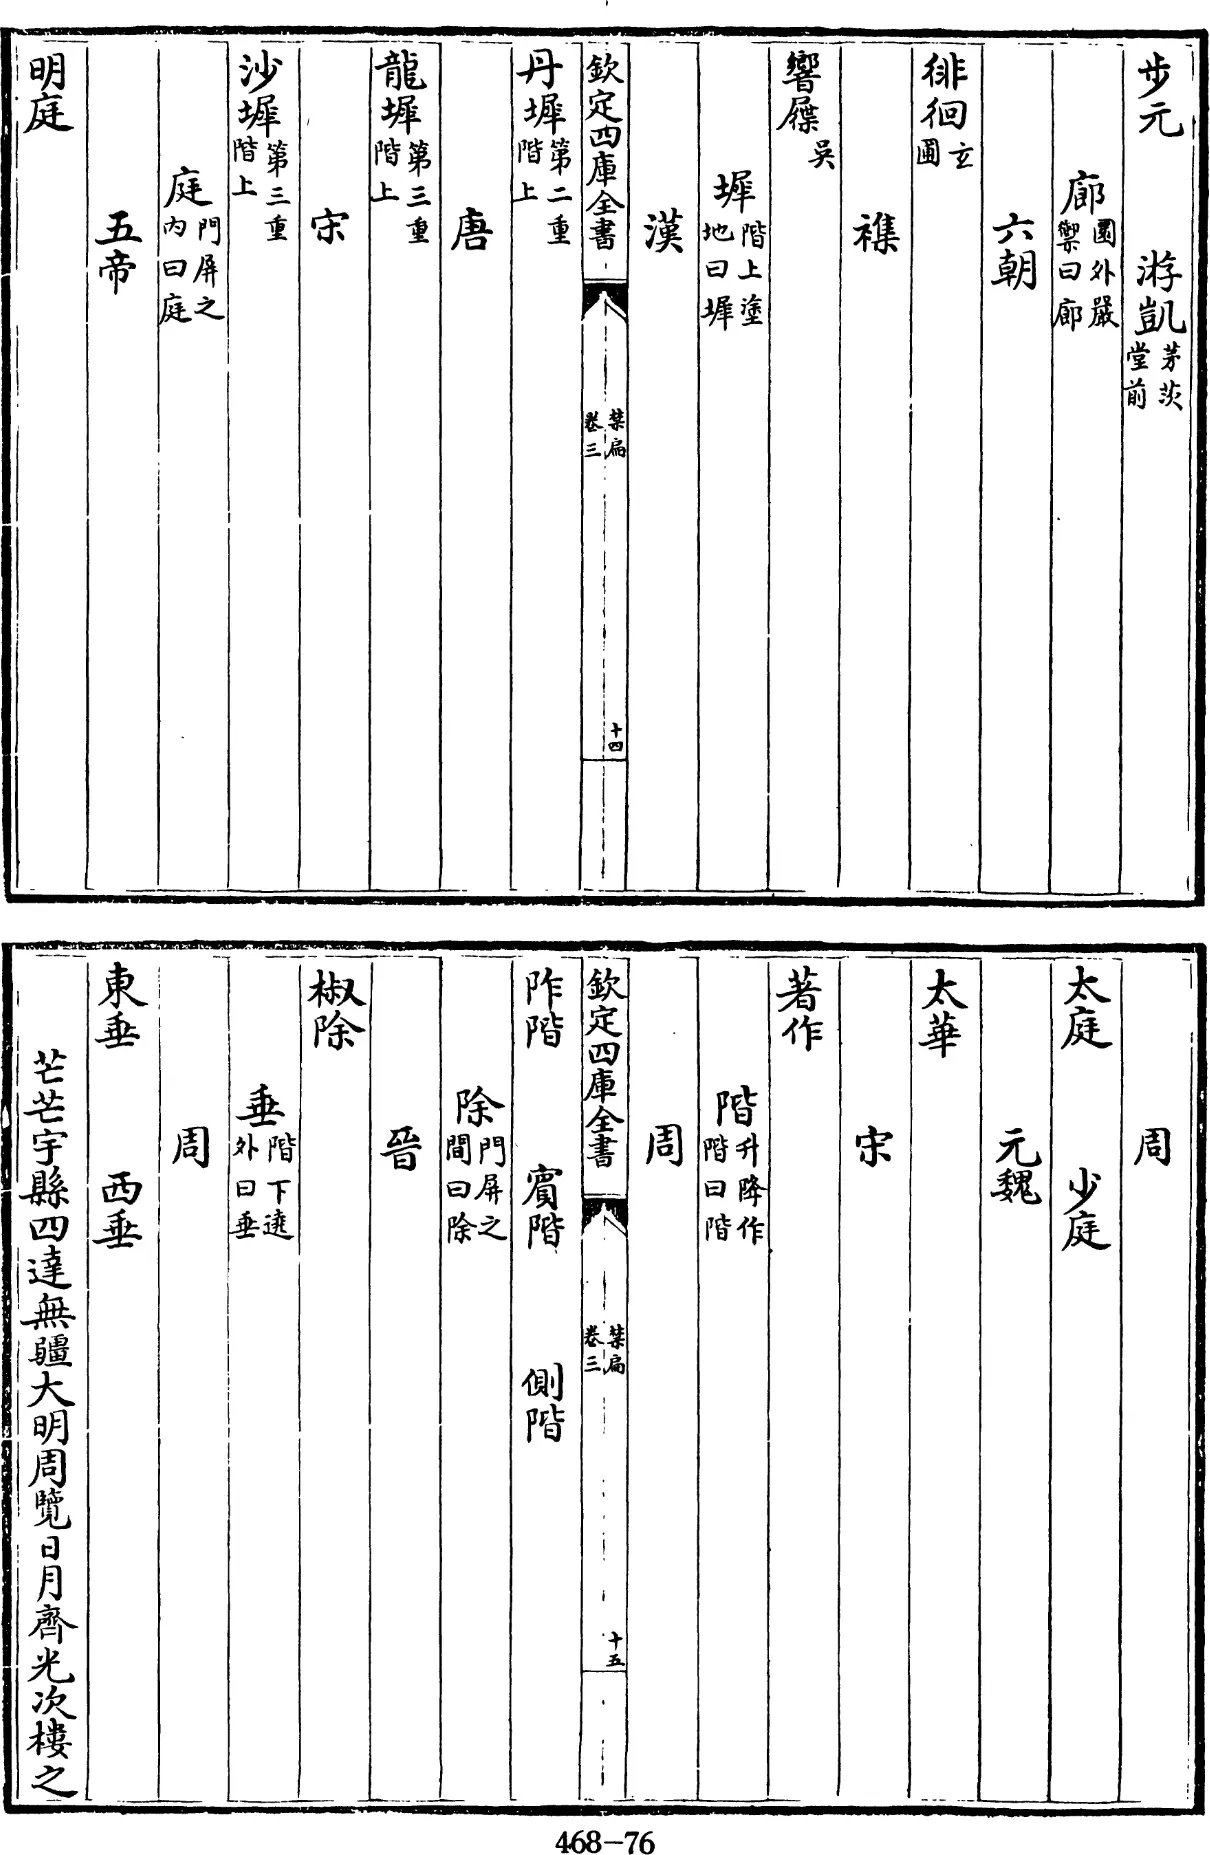 步元 游凱茅茨堂前
廊圜外嚴禦曰廊
六朝
徘徊玄圃
襍
響屧吳
墀階上塗地曰墀
漢
欽定四庫全書 禁扁卷三 十四
丹墀第二重階上
唐
龍墀第三重階上
宋
沙墀第三重階上
庭門屏之内曰庭
五帝
明庭
周
太庭 少庭
元魏
太華
宋
著作
階升降作階曰階
周
欽定四庫全書 禁扁卷三 十五
阼階 賓階 側階
除門屏之間曰除
晉
椒除
垂階下遶外曰垂
周
東垂 西垂
芒芒宇縣四達無疆大明周覽日月齊光次樓之
468-76